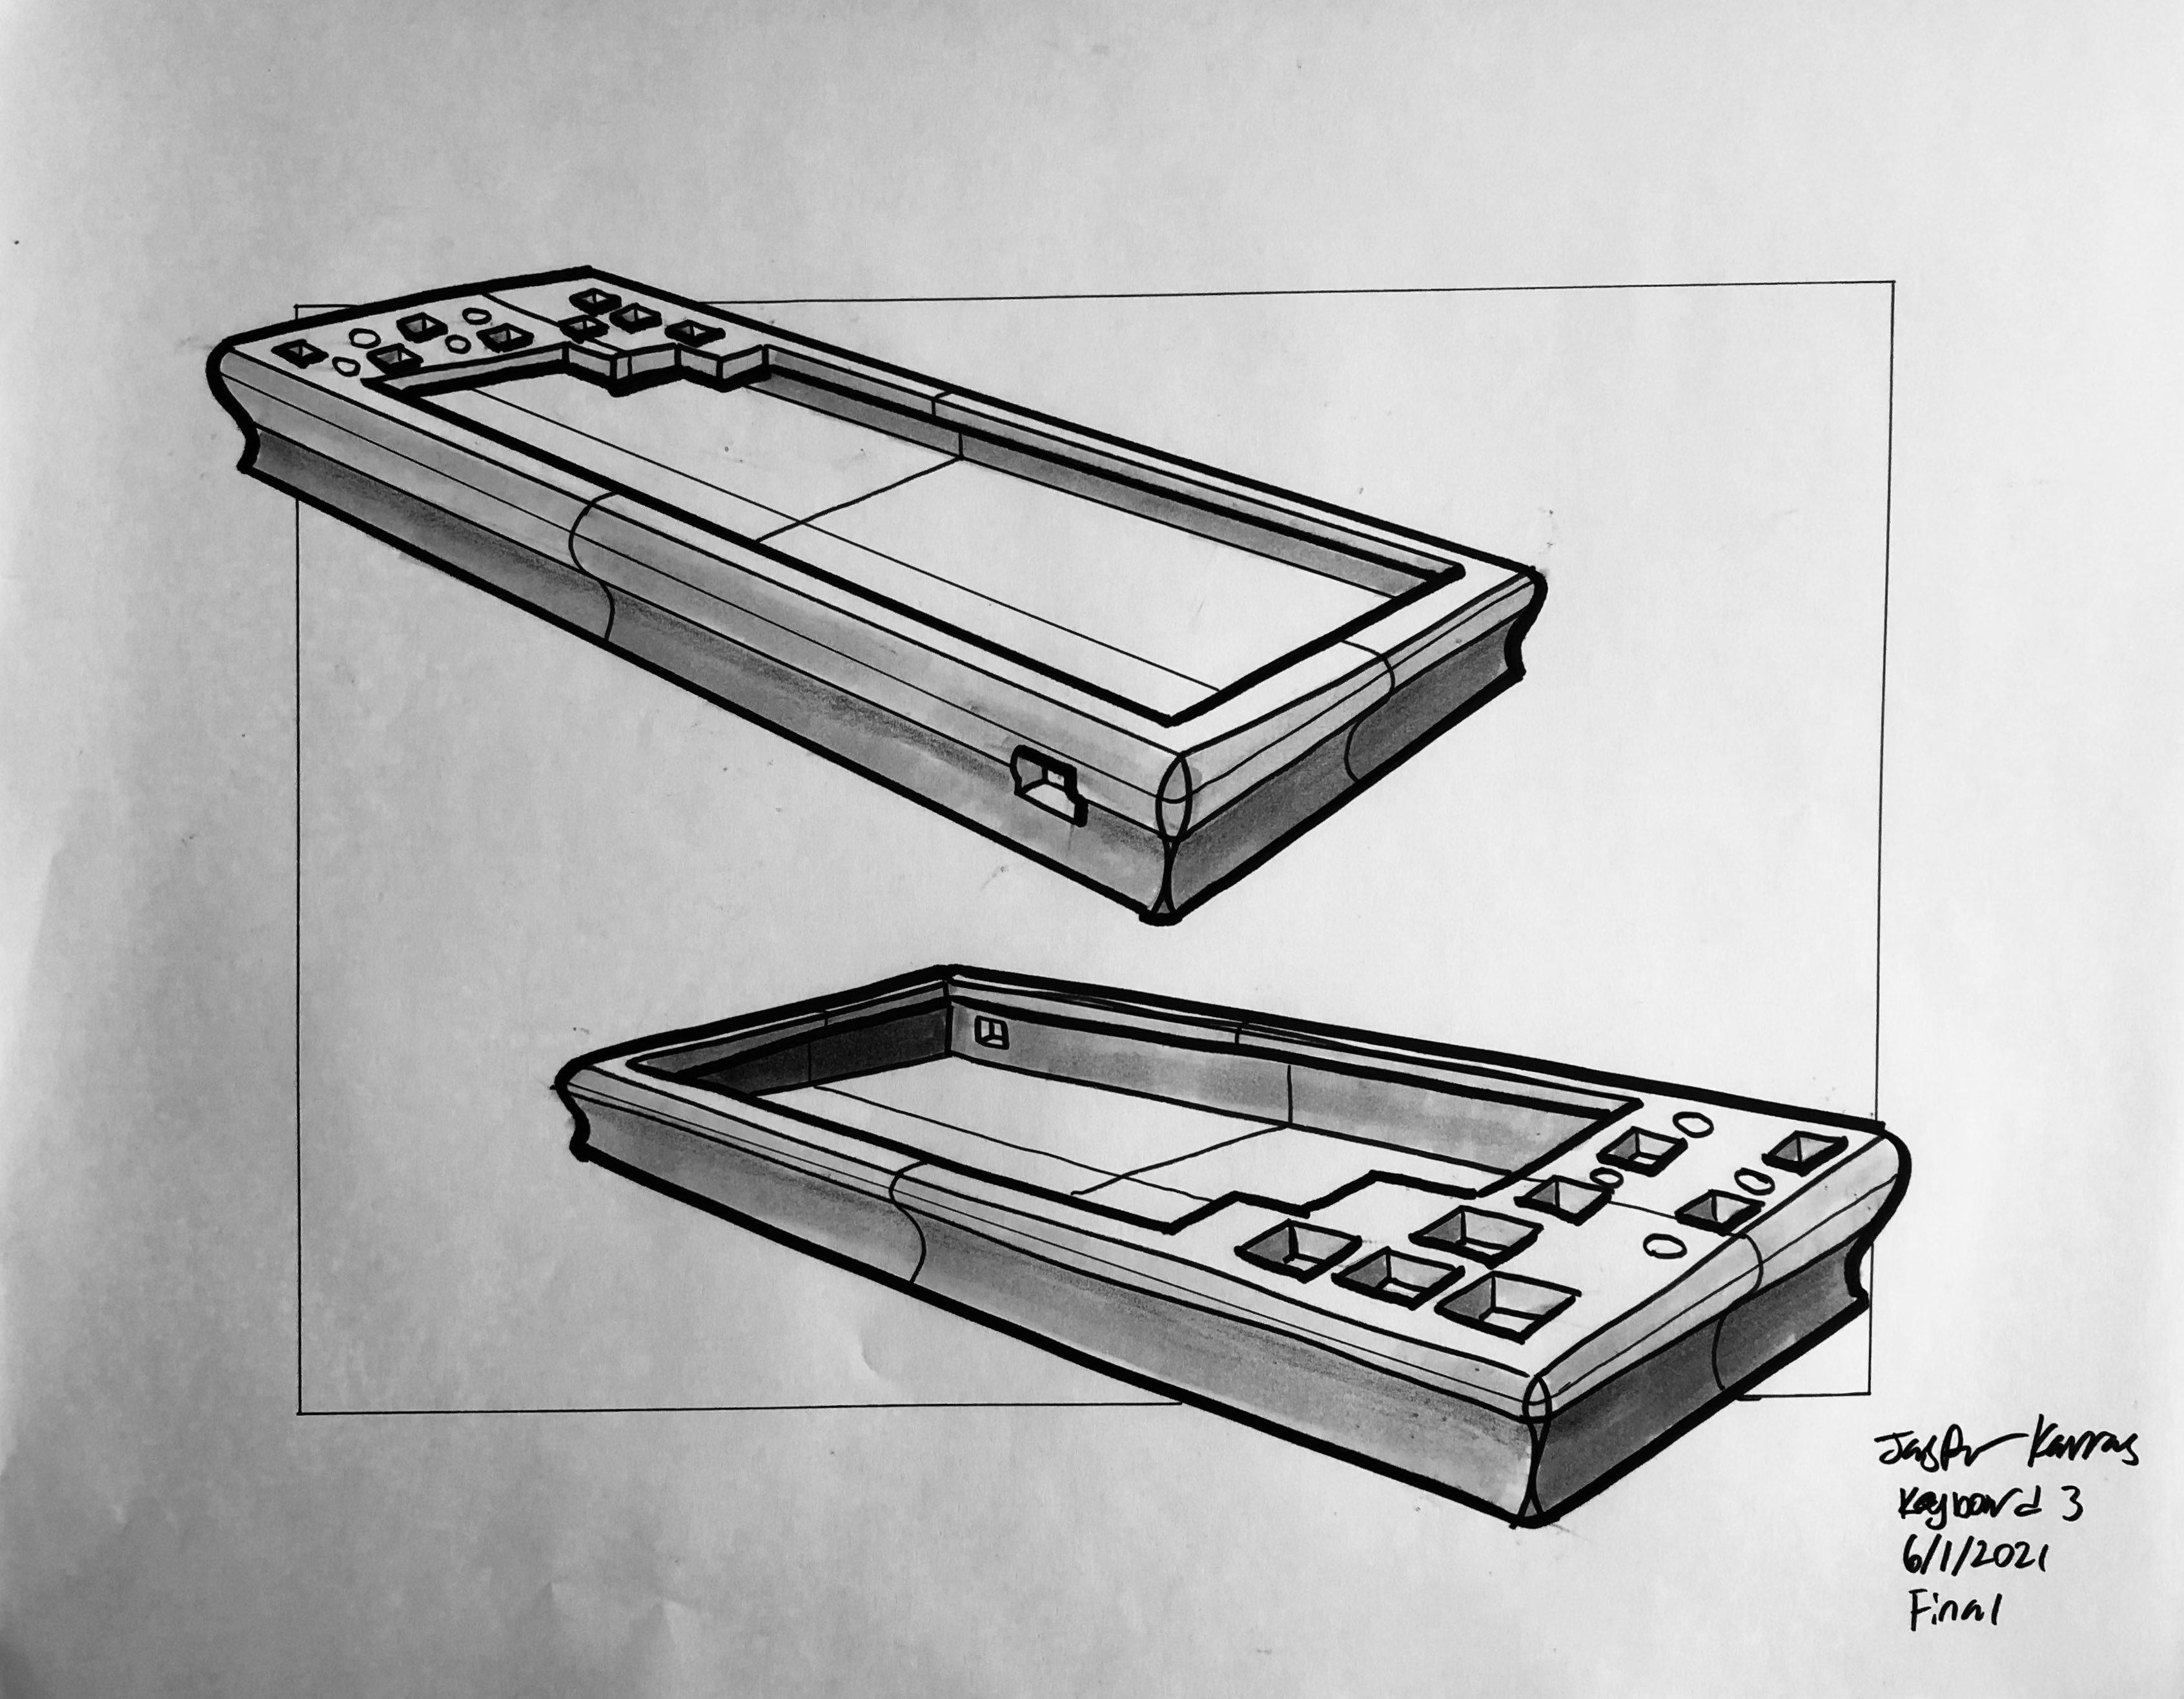 Jasper Karras
Keyboard 3
6/1/2021
Final